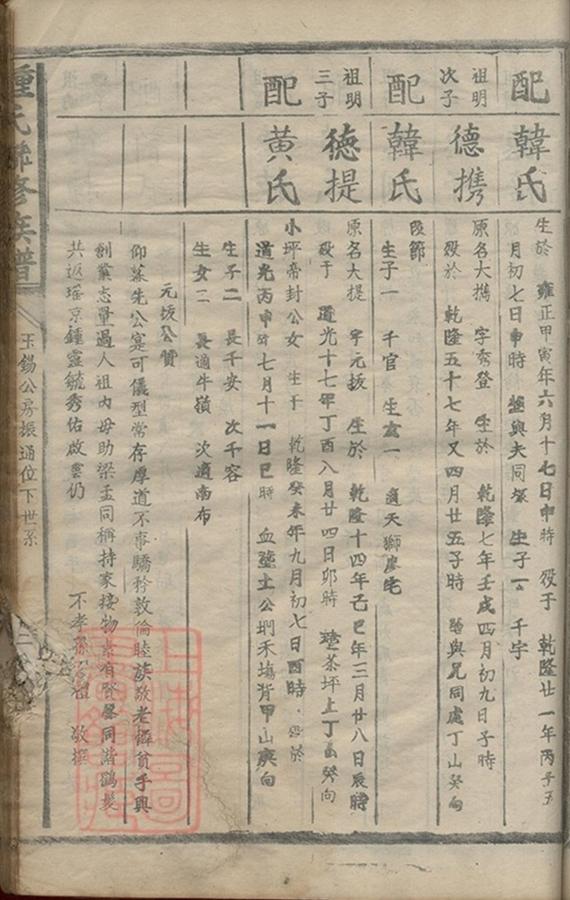 配 韓氏
生於 雍正甲寅年六月十七日申時 歿于 乾隆廿一年丙子五
月初七日申時 塟與夫同塚 生子一 千宇
祖明次子 德携
原名大携 字秀登 生於 乾隆七年壬戌四月初九日子時
歿於 乾隆五十七年又四月廿五子時 塟與兄同處丁山癸向
配 韓氏
改節
生子一 千官 生女一 適天獅廖宅
祖明三子 德提
原名大提 字元拔 生於 乾隆十四年己巳年三月廿八日辰時
歿于 道光十七年丁酉八月廿四日卯時 塟茶坪上丁山癸向
配 黃氏
小坪帝封公女 生于 乾隆癸未年九月初七日酉時 歿於
道光丙申年七月十一日巳時 血塟土公坝禾塲背甲山庚向
生子二 長千安 次千容
生女二 長適牛嶺 次適南布
元拔公贊
仰羨先公寔可儀型常存厚道不事驕矜敦倫睦族敬老憐貧手興
創業志量過人祖內毋助梁孟同稱持家接物素有賢聲同諧鶴髮
共返瑤京鍾靈毓秀佑啟雲仍 不孝孫 敬撰
鍾氏聯修族譜
玉錫公房振通位下世系